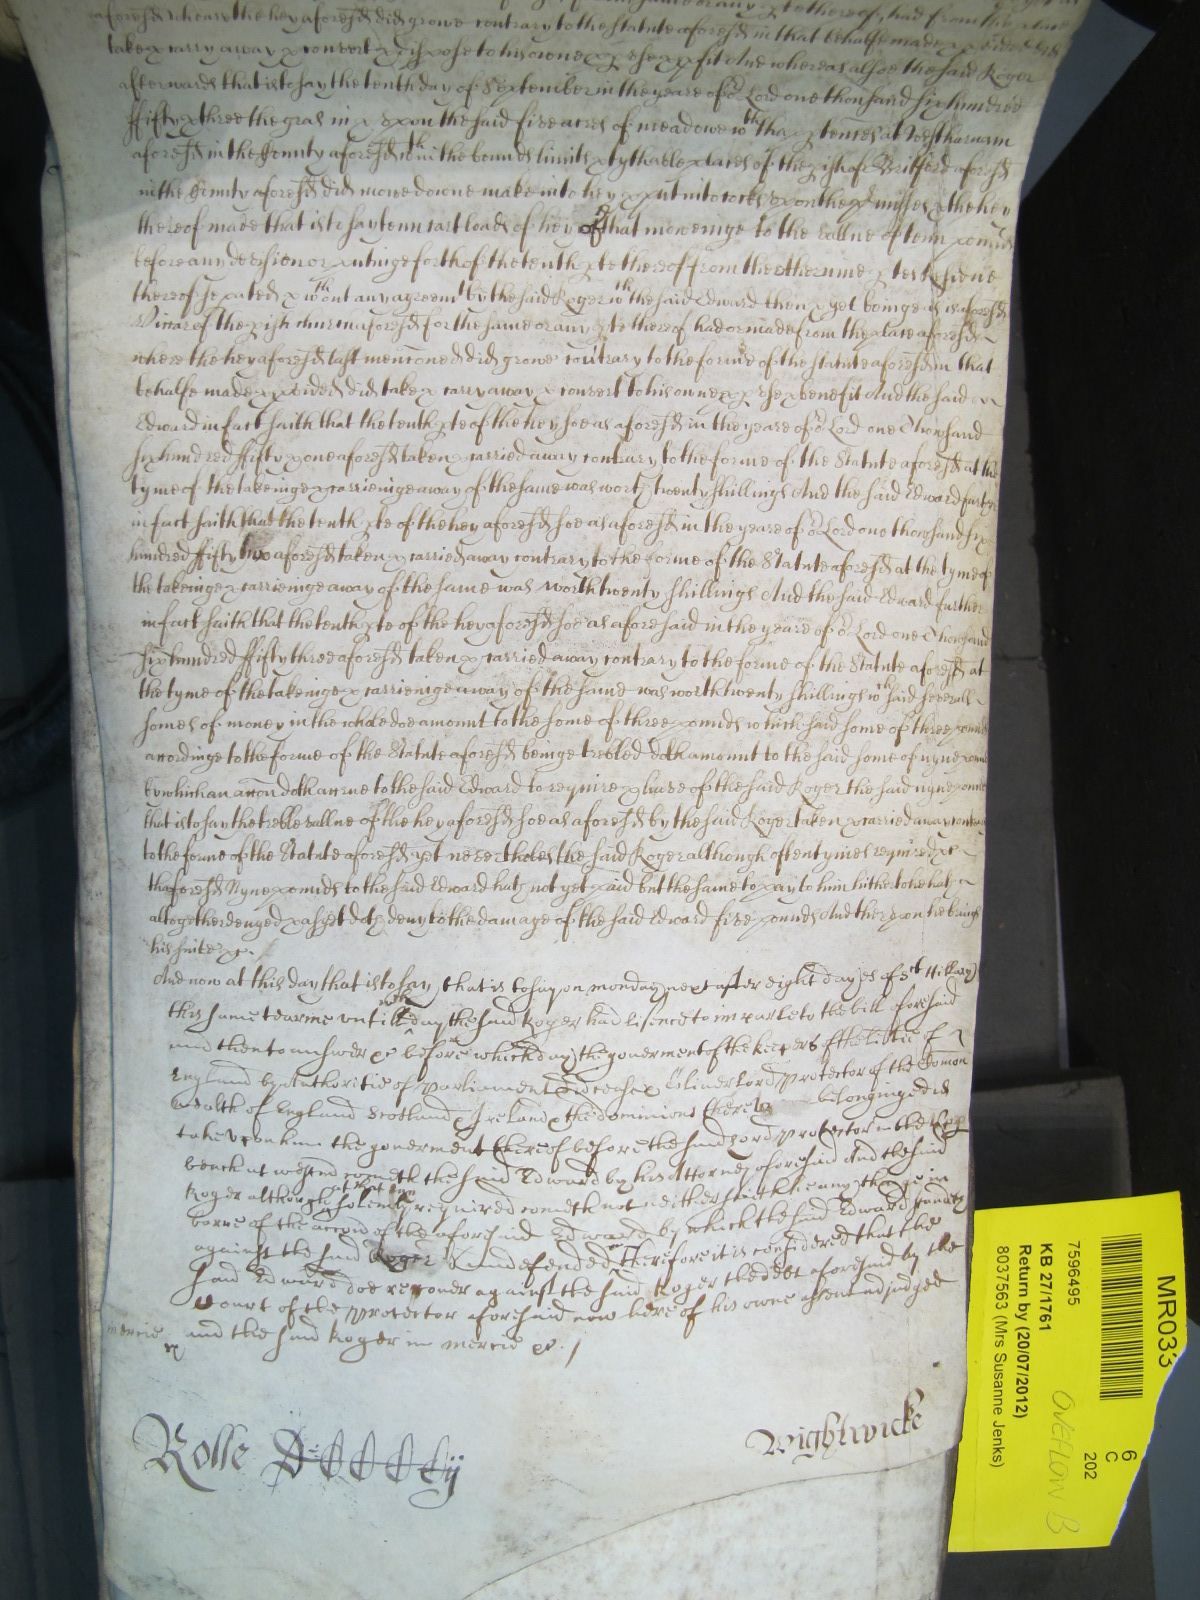 aforesd where the hey aforesd did growe contrary to the statute aforesd in that behalfe made
take & carry away & convert & dispose to his owne use And whereas alsoe the said Roger
afterwards that is to say the tenth day of September in the yeare of or Lord one thousand six hundred
ffifty & three the gras in & upon the said five acres of meadowe wth thapptences at Westharnam
aforesd in the County aforesd wthin the bounds limits & tythable places of the pish of Britford aforesd
in the County aforesd did mowe downe make into hey & put into cocks upon the pmisses & the hey
thereof made that is to say tenn cart loads of hey of that moweinge to the vallue of tenn pounds
before any devision or puttinge forth of the tenth pte thereof from the other nine ptes residue
thereof sepated & wthout any agreemt by the said Roger wth the said Edward then & yet beinge as is aforesd
Vicar of the pish church aforesd for the same or any pte thereof had or made from the place aforesd
where the hey aforesd last mencioned did growe contrary to the forme of the statute aforesd in that
behalfe made & pvided did take & carry away & convert to his owne pp use & benefit And the said
Edward in fact saith that the tenth pte of the hey soe as aforesd in the yeare of or Lord one Thousand
six hundred ffifty & one aforesd taken & carried away contrary to the forme of the Statute aforesd at the
tyme of the takeinge & carrieinge away of the same was worth twenty shillings And the said Edward further
in fact saith that the tenth pte of the hey aforesd soe as aforesd in the yeare of or Lord one thousand six
hundred ffifty two aforesd taken & carried away contrary to the forme of the Statute aforesd at the tyme of
the takeinge & carrieinge away of the same was worth twenty shillings And the said Edward further
in fact saith that the tenth pte of the hey aforesd soe as aforesaid in the yeare of or Lord one Thousand
six hundred ffifty three aforesd taken & carried away contrary to the forme of the Statute aforesd at
the tyme of the takeinge & carrieinge away of the same was worth twenty shillings wch said severall
somes of money in the whole doe amount to the some of three pounds which said some of three pounds
accordinge to the forme of the Statute aforesd beinge trebled doth amount to the said some of nyne pounds
by which an accon doth accrue to the said Edward to require & have of the said Roger the said nyne pounds
that is to say the treble vallue of the hey aforesd soe as aforesd by the said Roger taken & carried away contrary
to the forme of the Statute aforesd yet nevertheles the said Roger although oftentymes required &c
thaforesd Nyne pounds to the said Edward hath not yet paid but the same to pay to him hitherto hath
altogether denyed & as yet doth deny to the damage of the said Edward five pounds And thereupon he brings
his suite &c.
And now at this day that is to say that is to say on monday next after eight dayes of St Hillary
this same tearme untill wch day the said Roger had lisence to imparle to the bill aforesaid
and then to answer &c before which day the goverment of the keepers of the libtie of
England by Authoritie of Parliament did cease & Oliver Lord Protector of the Comon
wealth of England Scotland & Ireland & the dominions thereto belonginge did
take upon him the goverment thereof before the said Lord Protector in the Upp
bench at westmr cometh the said Edward by his Attorney aforesaid And the said
Roger although at that day solemly required cometh not neither saith he any thinge in
barre of the accon of the aforesaid Edward by which the said Edward remaineth
against the said Roger undefended Therefore it is considered that the
said Edward doe recover against the said Roger the debt aforesaid by the
Court of the Protector aforesaid now here of his owne assent adjudged
mercie and the said Roger in mercie &c. /
Rolle
Wightwicke
MR033
6
C
202
7596495
KB 27/1761
Return by (20/07/2012)
8037563 (Mrs Susanne Jenks)
OVEFLOW B